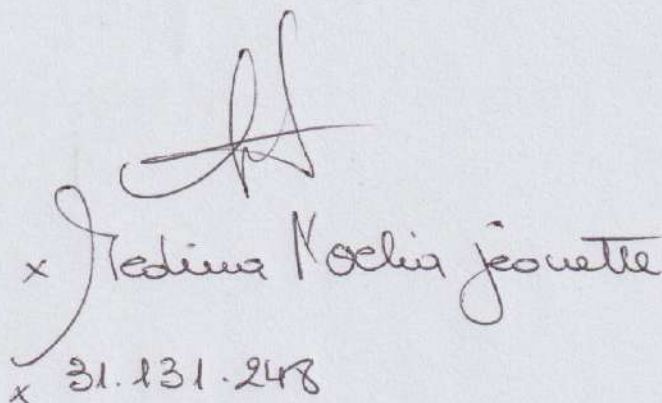 x Medina Noelia jeanette
x 31.131.248